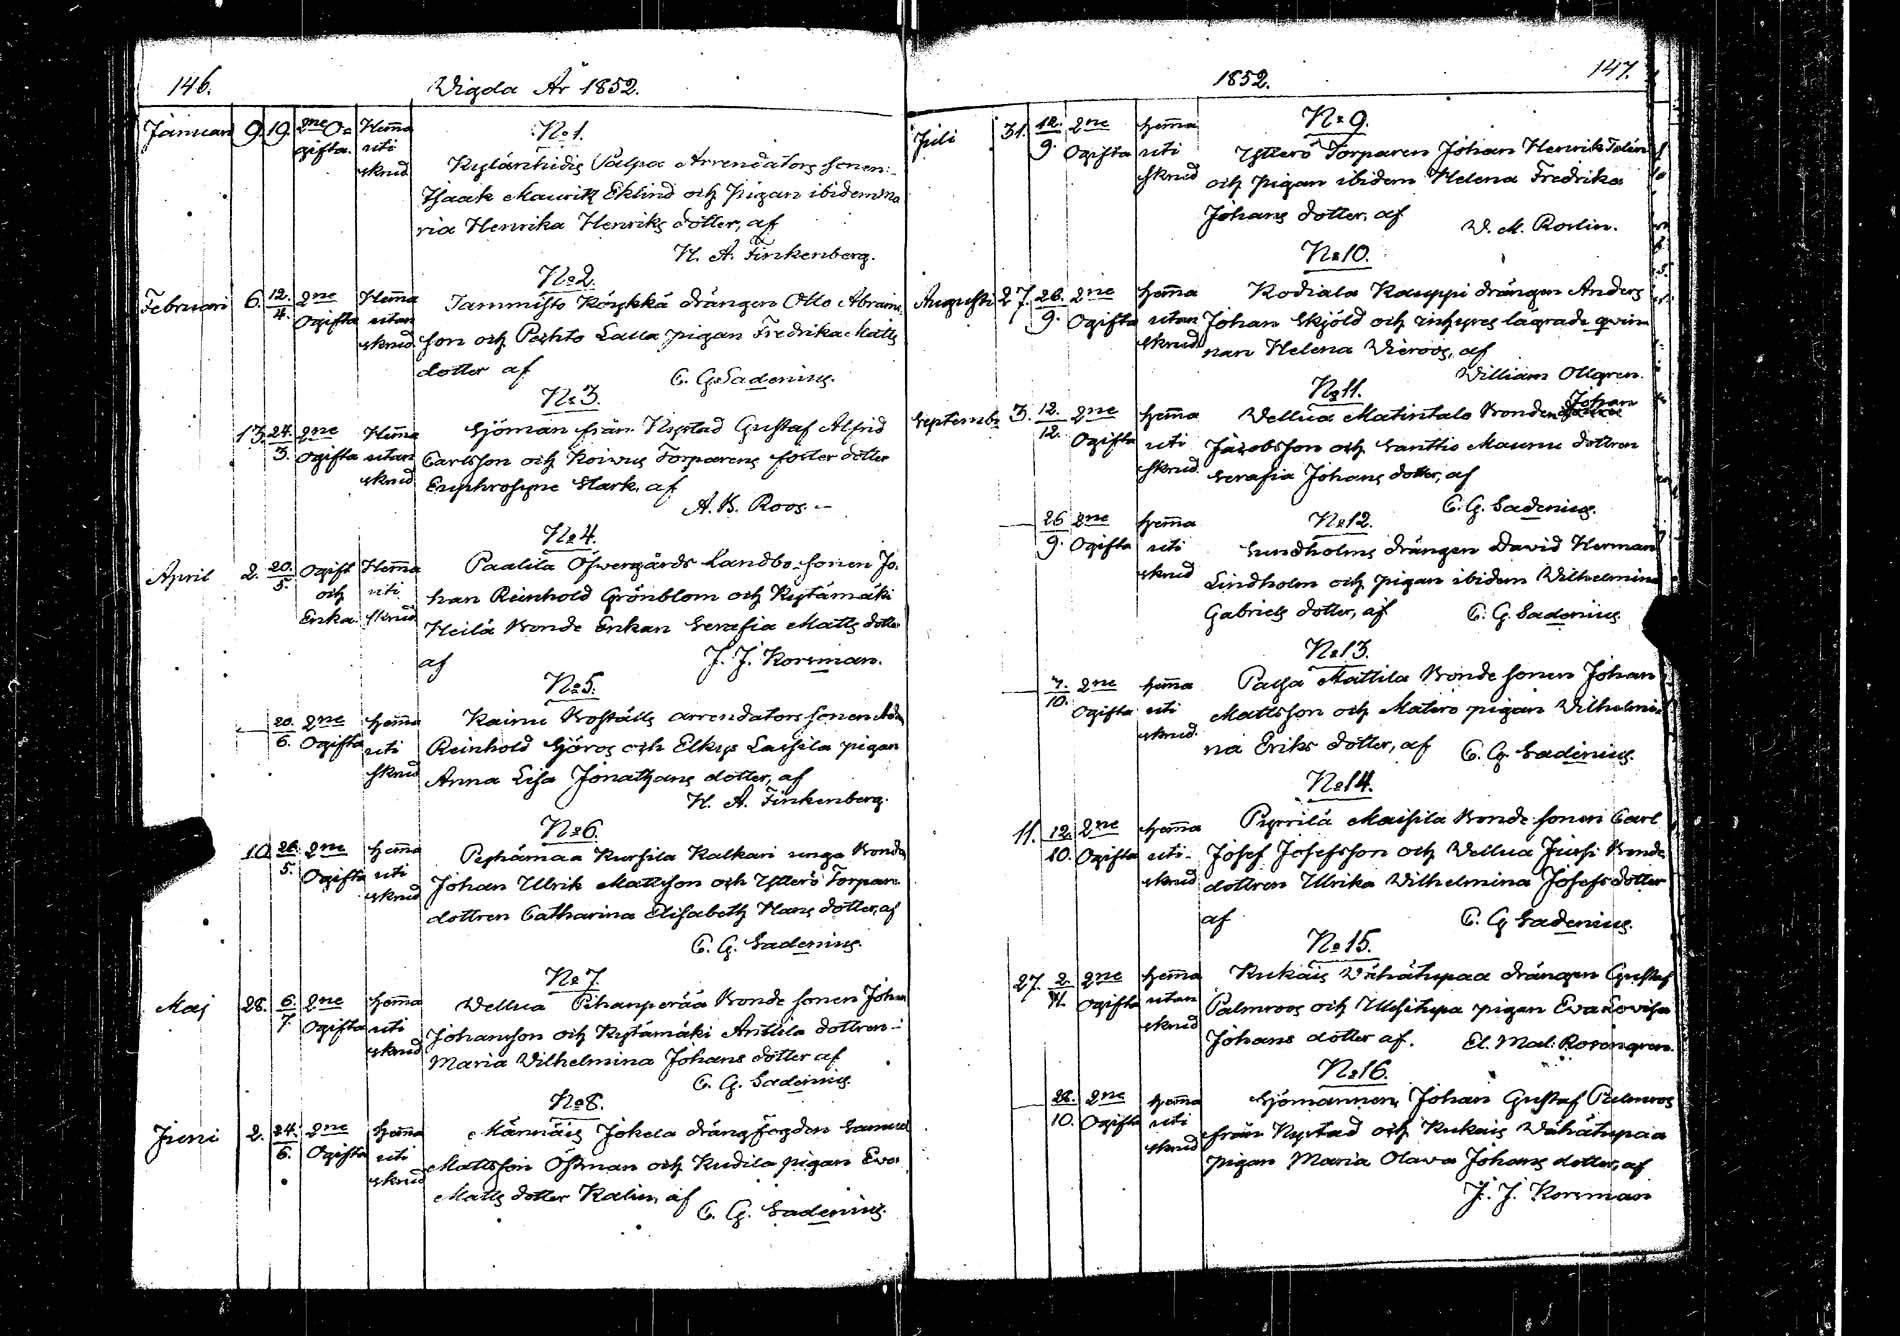 146.
Wigda År 1852.
Januari 9. 19. 2ne O= Hemma
gifta. uti
skrud
No 1.
Kylänhidis Välpä Arrendators sonen
Isaak Mauritz Eklind och pigan ibidem Ma
ria Henrika Henriks dotter, af
H. A. Finkenberg.
Februari 6. 12./4. 2ne Hemma
Ogifta utan
skrud
No 2.
Tammisto drängen Otto Abrams
son och Peshto Lalla pigan Fredrika Matts
dotter af
C. G. Sadenius.
13. 24./3. 2ne Hemma
Ogifta utan
skrud
No 3.
Sjöman från Nystad Gustaf Alfrid
Carlsson och Koivus Torparens foster dotter
Euphrosyne Stark, af
A. B. Roos.
April 2. 20./5. Ogift Hemma
och uti
Enka skrud
No 4.
Paalila Öfvergårds Landbo-sonen Jo-
han Reinhold Grönblom och Kystämäki
Heilä Bonde Enkan Serafia Matts dotter
af
J. J. Korsman.
20./6. 2ne hemma
Ogifta uti
skrud
No 5.
Kainu Boställs arrendators sonen
Reinhold Sjöros och Elkys Lassila pigan
Anna Lisa Jonathans dotter, af
H. A. Finkenberg.
10. 26./5. 2ne hemma
Ogifta uti
skrud
No 6.
Pyhämaa Kursila Kalkari unga Bonden
Johan Ulrik Mattsson och Ytterö Torpare
dottren Catharina Elisabeth Hans dotter, af
C. G. Sadenius.
Maj 28. 6./7. 2ne hemma
Ogifta uti
skrud
No 7.
Vellua Pihanperää Bonde sonen Johan
Johansson och Kystämäki Anttila dottren
Maria Vilhelmina Johans dotter af
C. G. Sadenius.
Juni 2. 24./6. 2ne hemma
Ogifta uti
skrud
No 8.
Männäis Jokela drängfogden Samuel
Mattsson Östman och Kudila pigan Eva
Matts dotter Kalin, af
C. G. Sadenius.
1852.
147.
Juli 31. 12./9. 2ne hemma
Ogifta uti
skrud
No 9.
Ytterö Torparen Johan Henrik Felin
och pigan ibidem Helena Fredrika
Johans dotter, af
V. M. Roslin.
Augusti 27. 26./9. 2ne hemma
Ogifta utan
skrud
No 10.
Kodiala Kauppi drängen Anders
Johan Skjöld och inhyses lägrade qvin
nan Helena Vieroos, af
William Ollqren.
Septemb. 3. 12./12. 2ne hemma
Ogifta uti
skrud
No 11.
Vellua Matintalo Bonden Johan
Jacobsson och Santtio Maunu dottren
Serafia Johans dotter, af
C. G. Sadenius.
26/9. 2ne hemma
Ogifta uti
skrud
No 12.
Sundholms drängen David Herman
Lindholm och pigan ibidem Wilhelmina
Gabriels dotter, af
C. G. Sadenius
7./10. 2ne hemma
Ogifta uti
skrud
No 13.
Mattila Bonde sonen Johan
Mattsson och Matero pigan Vilhelmi-
na Eriks dotter, af
C. G. Sadenius.
11. 12./10. 2ne hemma
Ogifta uti
skrud
No 14.
Pyrrilä Maisila Bonde sonen Carl
Josef Josefsson och Vellua Jussi Bonde
dottren Ulrika Wilhelmina Josefs dotter
af
C. G. Sadenius.
27. 2./11. 2ne hemma
Ogifta utan
skrud
No 15.
Kukais Vähätupaa drängen Gustaf
Palmroos och pigan Eva Lovisa
Johans dotter af.
El. Mal: Rosengren.
28./10. 2ne hemma
Ogifta uti
skrud
No 16.
Sjömannen Johan Gustaf Palmroos
från Nystad och Kukais Vähätupaa
pigan Maria Olava Johans dotter, af
J. J. Korsman